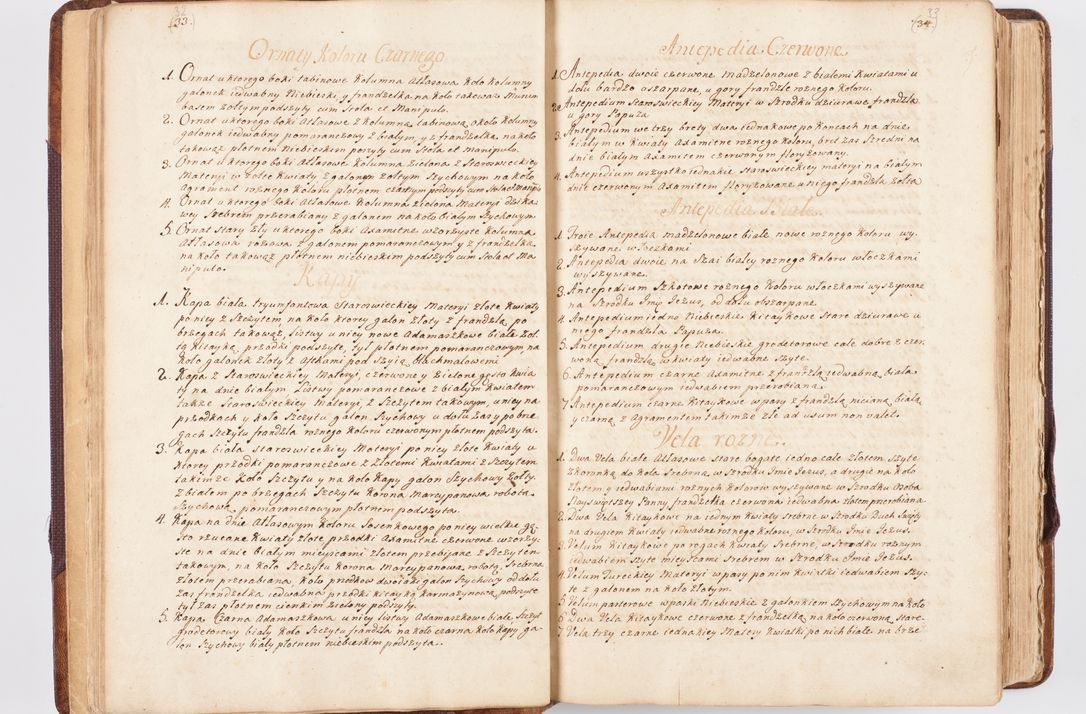 32
(33.)
Ornaty Koloru Czarnego
1. Ornat u ktorego boki tabinowe Kolumna Atłasowa koło kolumny
galonek iedwabny Niebieski, y frandzelka na koło takoważ Muzum
basem zołtym podszyty cum Stola et Manipulo.
2. Ornat u ktorego boki Atłasowe z Kolumną tabinową, około kolumny
galonek iedwabny pomaranczowy z białym, y z frandzelką na koło
takowąż płotnem Niebieskim poszyty cum Stola et manipulo.
3. Ornat u ktorego boki Atłasowe Kolumna zielona z Staroswieckiey
Materyi w złote Kwiaty, z galonem zołtym Szychowym na koło
Agrament roznego Koloru płotnem czarnym podszyty cum Stola et Manipulo
4. Ornat u ktorego boki Atłasowe Kolumna zielona Materyi dzika
wey Srebrem przerabiany z galonem na koło białym Szychowym
5. Ornat Stary zły u ktorego boki Axamitne wzorzyste Kolumna
Atłasowa rozowa z galonem pomaranczowym y z frandzelką
na koło takowąż płotnem niebieskim podszyty cum Stola et Ma
nipulo.
Kapy
1. Kapa biała tryumfantowa Staroswieckiey Materyi złote Kwiaty
po niey z Szczytem na koło ktorey galon złoty z frandzlą po
brzegach takowąż, listwy u niey nowe Adamaszkowe białe zoł
tą Kitayką przodki podszyte, tył płotnem pomaranczowym, na
koło galonek złoty z Aftkami pod Szyią blachmalowemi
2. Kapa z Staroswieckiey Materyi, czerwone y zielone gęsto kwia
ty na dnie białym, Listwy pomaranczowe z białym kwiatem
także Staroswieckiey Materyi, z Szczytem takowym, u niey na
przodkach y koło Szczytu galon Szychowy u dołu zas y po brze
gach Szczytu frandzla roznego Koloru czerwonym płotnem podszyta.
3. Kapa biała Staroswieckiey Materyi po niey złote Kwiaty u
ktorey przodki pomaranczowe z złotemi Kwiatami z Szczytem
takimże Koło Szczytu y na koło Kapy galon Szychowy zołty.
Z białem po brzegach Szczytu Korona Marcypanowa robota
Szychowa, pomaranczowym płotnem podszyta.
4. Kapa na dnie Atłasowym Koloru Sosenkowego po niey wielkie gę
sto rzucane Kwiaty złote, przodki Axamitne czerwone wzorzy
ste na dnie białym mieyscami złotem przebijane z Szczytem
takowym, na koło Szczytu Korona Marcypanową robotą, Srebrna
złotem przerabiana, koło przodkow dwoiaki galon Szychowy od dołu
zas frandzelka iedwabna przodki Kitayką Karmazynową podszyte
tył zas płotnem cienkim zielony podszyty.
5. Kapa Czarna Adamaszkowa, u niey listwy Adamaszkowe białe, Szczyt
grodetorowy biały koło Szczytu frandzla na koło czarna koło Kapy ga-
lon Szychowy biały płotnem niebieskim podszyta.
33
(34.)
Antepedia Czerwone
1. Antepedia dwoie czerwone Madzelonowe z białemi Kwiatami u
dołu bardzo oszarpane, u gory frandzle roznego koloru.
2. Antepedium Staroswieckiey Materyi w Szrodku dziurawe, frandzla
u gory Papuza
3. Antepedium we trzy bręty dwa iednakowe po Koncach na dnie
białym w Kwiaty Axamitne roznego Koloru, bręt zas Sredni na
dnie białym Axamitem czerwonym floryzowany.
4. Antepedium wszystko iednakie Staroswieckiey materyi na białym
dnie czerwonym Axamitem floryzowane u niego frandzla zołta
Antepedia Białe.
1. Troie Antepedia madzelonowe białe nowe roznego koloru wy.
szywane włoczkami
2. Antepedia dwoie na Szai białey roznego Koloru włoczkami
wyszywane.
3. Antepedium Szkotowe roznego Koloru włoczkami wyszywane
na Szrodku Imię Jezus, od dołu obszarpane
4 Antepedium iedno Niebieskie Kitaykowe Stare dziurawe u
niego frandzla Papuza.
5. Antepedium drugie Niebieskie grodetorowe całe dobre z czer
woną frandzlą w kwiaty iedwabne szyte.
6. Antepedium czarne Axamitne z frandzlą iedwabną białą
pomaranczowym iedwabiem przerabiana.
7 Antepedium czarne Kitaykowe w pasy z frandzlą nicianą białą
y czarną z Agramentem takimże złe ad usum non valet.
Vela rozne.
1. Dwa Vela białe Atłasowe Stare bogate iedno całe złotem szyte
z koronką do koła Srebrną, w Szrodku Imie Jezus, a drugie na koło
złotem y iedwabiami roznych Kolorow wyszywane w Szrodku Osoba
Nayswiętszey Panny, frandzelka czerwona iedwabna złotem przerabiana
2. Dwa Vela Kitaykowe na iednym kwiaty Srebrne w Szrodku Duch Swięty
na drugiem Kwiaty iedwabne roznego koloru, w Szrodku Imie Jezus.
3. Velum Kitaykowe po rogach Kwiaty Srebrne, w Srodku roznym
iedwabiem szyte mieyscami Srebrem w Szrodku Imie Jezus.
4. Velum Tureckiey Materyi w pasy po nim Kwiatki iedwabiem Szy-
te z galonem na koło złotym.
5 Velum panterowe w paski Niebieskie z galonkiem Szychowym na koło
6 Dwa Vela Kitaykowe czerwone z frandzelką na koło czerwoną Stare.
7 Vela trzy czarne iednakiey Matery kwiatki po nich białe na brze